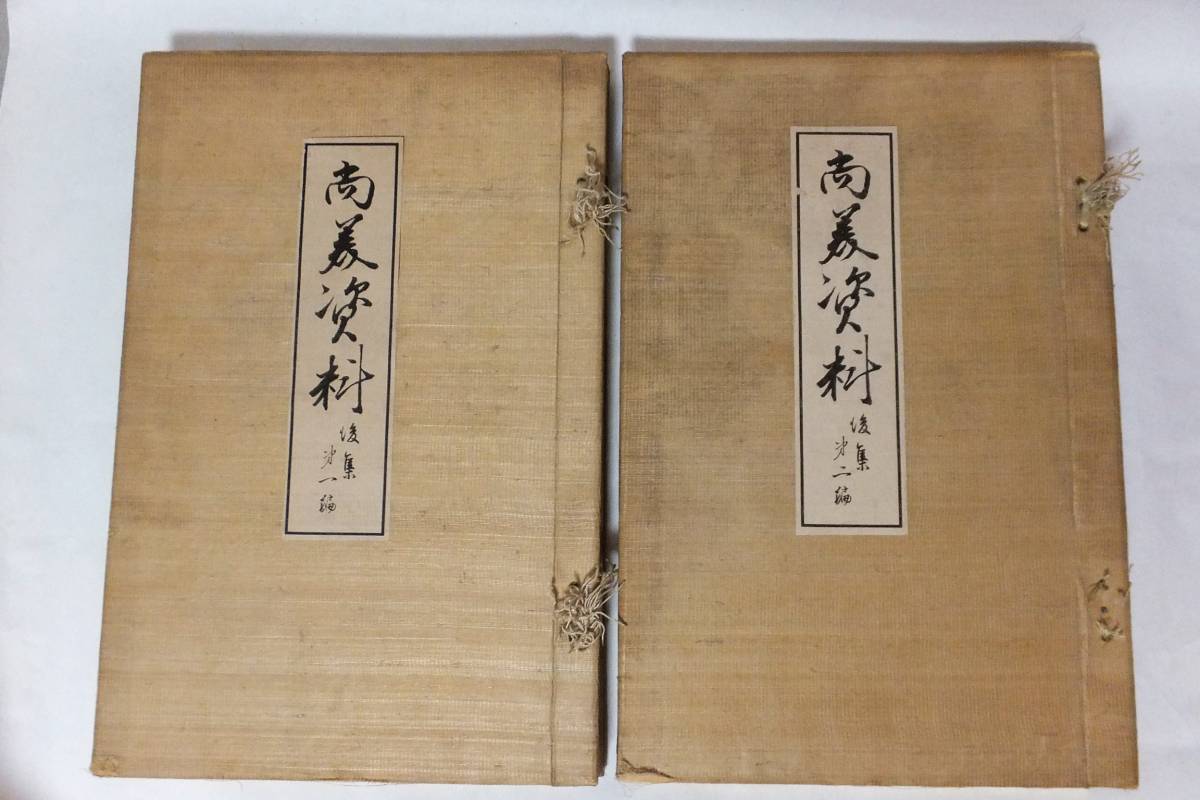 尚美資料
後集
第一編
尚美資料
後集
第二編